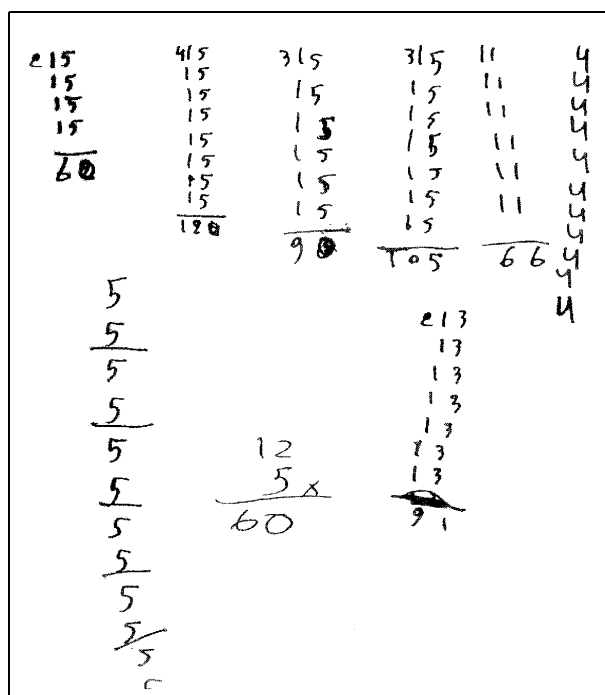 215
15
15
15
60
415
15
15
15
15
15
15
15
120
315
15
15
15
15
15
90
315
15
15
15
15
15
15
105
11
11
11
11
11
11
66
4
4
4
4
4
4
4
4
4
4
4
5
5
5
5
5
5
5
5
5
5
5
12
5 x
60
213
13
13
13
13
13
13
91